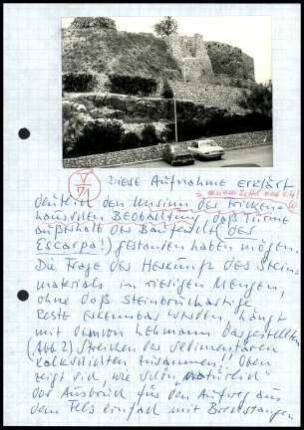 V/71 Diese Aufnahme erklärt
deutlich den Unsinn der
Beobachtung, daß Türme
außerhalb der Baufeucht (der
Escarpa!) gestanden haben mögen.
Die Frage der Herkunft des Stein-
materials in riesigen Mengen,
ohne daß steinbruchartige
Reste erkennbar werden, hängt
mit dem von Lehmann dargestellten
(Abb 2) Streichen der sedimentären
Kalkschichten zusammen!! Oben
zeigt sich, wie schön „natürlich"
der Ausbruch für den Aufweg aus
dem Fels einfach mit Brechstangen